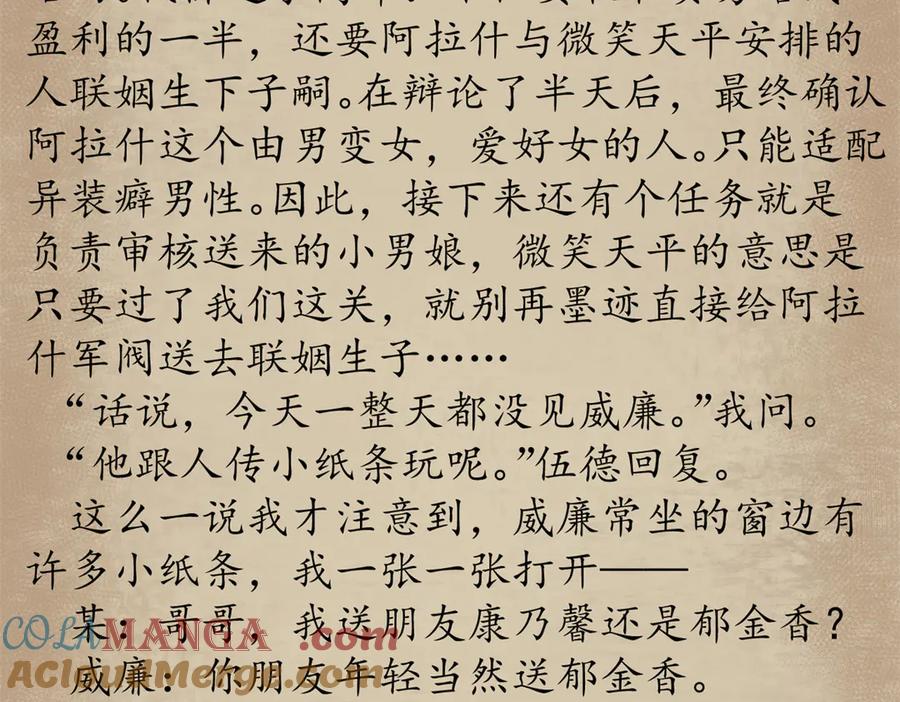 盈利的一半，还要阿拉什与微笑天平安排的
人联姻生下子嗣。在辩论了半天后，最终确认
阿拉什这个由男变女，爱好女的人。只能适配
异装癖男性。因此，接下来还有个任务就是
负责审核送来的小男娘，微笑天平的意思是
只要过了我们这关，就别再墨迹直接给阿拉
什军阀送去联姻生子……
“话说，今天一整天都没见威廉。”我问。
“他跟人传小纸条玩呢。”伍德回复。
这么一说我才注意到，威廉常坐的窗边有
许多小纸条，我一张一张打开——
某：哥哥，我送朋友康乃馨还是郁金香？
威廉：你朋友年轻当然送郁金香。
COLAMANGA.com
AcloudMerge.com